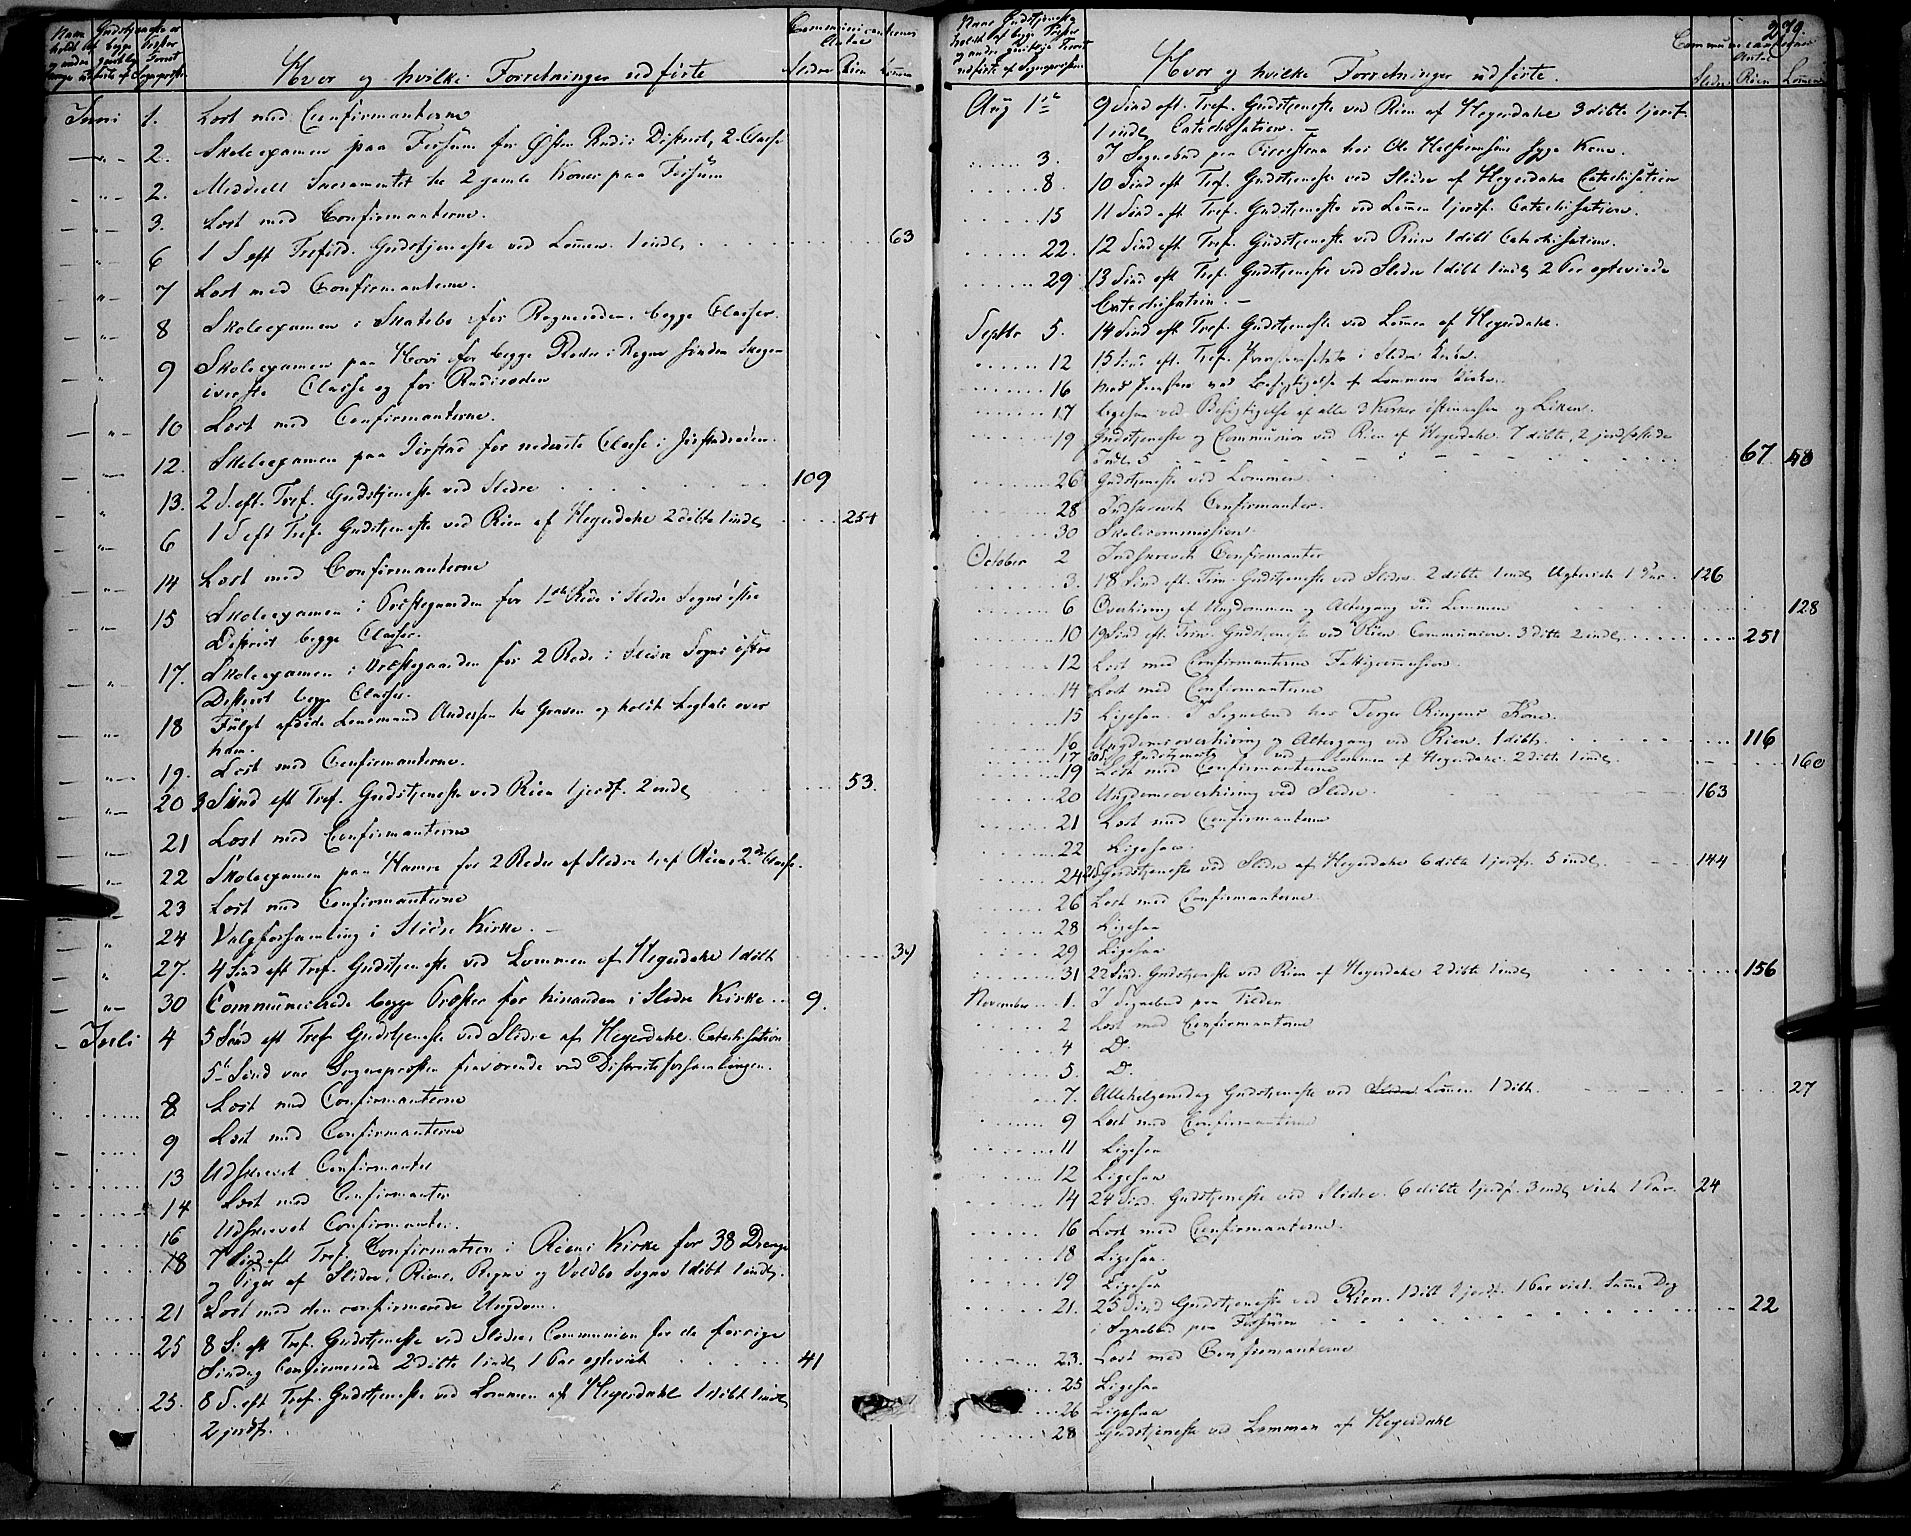 Naar Gudstjeneste er
holdt af begge Præster
og andre geistlige Forret
ninger udførte af Sognepræsten
Hvor og hvilke Forretninger udførte
Communicanternes
Antal
Slidre Röen Lomen
Juni 1. Læst med Confirmanterne
2. Skoleexamen paa Fossum for Østre Rudi District, 2. Classe
2. Meddeelt Sacramentet til 2 gamle Koner paa Fossum
3. Læst med Confirmanterne.
6 1 S eft Trefold. Gudstjeneste ved Lomen. 1 indl. 63
7 Læst med Confirmanterne.
8 Skoleexamen i Skatebo for Rogneroden, begge Classer.
9 Skoleexamen paa Hovi for begge Roder i Rogne søndre
øverste Classe og for Rudiroden
10 Læst med Confirmanterne.
12. Skoleexamen paa Jarstad for nederste Classe i Jarstadroden.
13. 2 S. eft. Tref. Gudstjeneste ved Slidre 109
6 1 S eft Tref. Gudstjeneste ved Röen af Heyerdahl 2 döbte 1 indl. 254
14 Læst med Confirmanterne
15 Skoleexamen i Præstegaarden for 1ste Rode i Slidre Sogns østre
District begge Classer.
17. Skoleexamen i Præstegaarden for 2 Rode i Slidre Sogns østre
District begge Classer.
18 Fulgt afdöde Lensmand Andersen til Graven og holdt Ligtale over
ham.
19. Læst med Confirmanterne.
20 3 Sönd eft Tref. Gudstjeneste ved Röen 1 jordf. 2 indl. 53.
21 Læst med Confirmanterne
22 Skoleexamen paa Hamre for 2 Roder af Slidre 2. Classe.
23 Læst med Confirmanterne
24 Valgforsamling i Slidre Kirke. —
27. 4 Sönd eft Tref. Gudstjeneste ved Lommen af Heyerdahl 1 döbt 34
30 Communicerede begge Præster for hinanden i Slidre Kirke 9.
Juli 4 5 Sönd eft Tref Gudstjeneste ved Slidre af Heyerdahl. Catechisation
5te Sönd var Sognepræsten fraværende ved Districtsforsamlingen.
8 Læst med Confirmanterne
9 Læst med Confirmanterne
13 Udskrevet Confirmanter
14 Læst med Confirmanter
16 Udskrevet Confirmanter.
18 7 Sönd eft Tref. Confirmation i Röens Kirke for 38 Drenge
og Piger af Slidre, Röens, Rogne og Voldbo Sogne 1 döbt 1 indl.
21 Læst med den confirmerede Ungdom.
25 8 S. eft Tref. Gudstjeneste ved Slidre, Communion for de forrige
Söndag Confirmerede 2 döbte 1 indl. 1 Par egteviet 41
25. 8 S. eft Tref. Gudstjeneste ved Lommen af Heyerdahl 1 döbt 1 indl.
2 jordf.
Naar Gudstjeneste
holdt af begge Præster
og andre geistlige Forret
udförte af Sognepræsten
Hvor og hvilke Forretninger udførte.
279.
Communicanternes
Antal
Slidre Röen Lomen
Aug 1ste 9 Sönd eft. Tref. Gudstjeneste ved Röen af Heyerdahl 3 döbte 1 jordf.
1 indl. Catechisation. —
3. I Sognebud paa hos Ole syge Kone.
8 10 Sönd eft Tref. Gudstjeneste ved Slidre af Heyerdahl Catechisation
15 11 Sönd eft Tref. Gudstjeneste ved Lomen 1 jordf. Catechisation.
22. 12 Sönd eft. Tref. Gudstjeneste ved Röen 1 döbt Catechisation.
29 13 Sönd eft Tref. Gudstjeneste ved Slidre 1 döbt 1 indl. 2 Par egteviede
Catechisation. —
Septbr 5. 14 Sönd eft Tref. Gudstjeneste ved Lomen af Heyerdahl.
12 15 Sönd eft. Tref. i Slidre Kirke.
16 ved Besigtigelse af Lommens Kirke.
17 Ligesaa ved Besigtigelse af alle 3 Kirker
19 Gudstjeneste og Communion ved Röen af Heyerdahl. 7 döbte, 2 jordfæstede
Indl. 5 67 40
26 Gudstjeneste ved Lommen.
28 Indskrevet Confirmanter.
30 Skolecommission
October 2 Indskrevet Confirmanter
3. 18 Sönd eft. Trin. Gudstjeneste ved Slidre. 2 döbte 1 indl. Egteviet 1 Par. 126
6 Overhöring af Ungdommen og Altergang ved Lommen 128
10 19 Sönd eft. Trin. Gudstjeneste ved Röen Communion. 3 döbte 2 indl. 251
12 Læst med Confirmanterne Fattigcommission.
14 Læst med Confirmanterne
15 Ligesaa. I Sognebud hos Torger Ringens Kone.
16 Ungdomsoverhöring og Altergang ved Röen. 1 döbt. 116
17 20 S. Gudstjeneste ved Lommen af Heyerdahl. 2 döbte 1 indl. 160
19 Læst med Confirmanterne
20 Ungdomsoverhöring ved Slidre. 163
21 Læst med Confirmanterne
22 Ligesaa.
24 21 S Gudstjeneste ved Slidre af Heyerdahl 6 döbte 1 jordf. 5 indl. 144
26 Læst med Confirmanterne.
28 Ligesaa
29 Ligesaa
31 22 Sönd. Gudstjeneste ved Röen af Heyerdahl 2 döbte 1 indl. 156
November 1. I Sognebud paa
2 Læst med Confirmanterne
4 D.
5. D.
7. Allehelgensdag Gudstjeneste ved Slidre Lomen 1 döbt. 27
9 Læst med Confirmanterne
11 Ligesaa
12 Ligesaa
14 24 Sönd. Gudstjeneste ved Slidre. 6 döbte 1 jordf. 3 indl. viet 1 Par. 24
16 Læst med Confirmanterne.
18 Ligesaa.
19 Ligesaa
21. 25 Sönd Gudstjeneste ved Röen. 1 döbt 1 jordf. 1 Par viet. Samme Dag
i Sognebud paa Fossum 22
23. Læst med Confirmanterne
25 Ligesaa
26 Ligesaa
28 Gudstjeneste ved Lommen af Heyerdahl